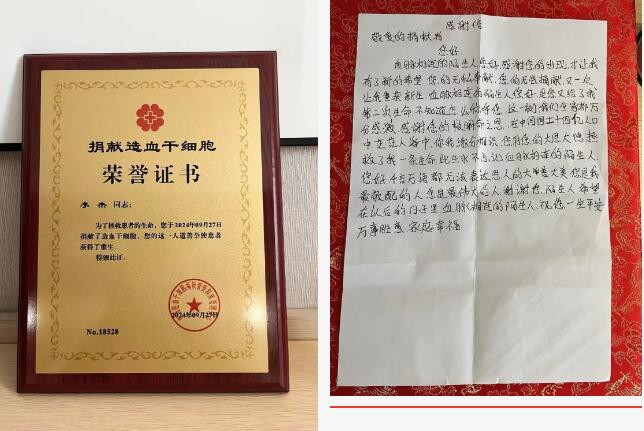 捐献造血干细胞
荣誉证书
李杰 同志：
为了拯救患者的生命，您于2024年09月27日
捐献了造血干细胞，您的这一人道善举使患者
获得了重生。
特颁此证。
2024年09月27日
No.18528
感谢信
敬爱的捐献者
您好，
血脉相连的陌生人您好，感谢您的出现，才让我
有了新的希望，您的无私奉献，您的无偿捐献，又一次
让我重获新生，血脉相连的陌生人您好，是您又给了我
第二次生命，不知道怎么称呼您，这一刻我们全家都万
分感激，感谢您的救命之恩，在中国四十四亿人口
中
在人海中，你我
相识，您用您的大恩大德拯
救了我一条生命，此生永不忘记，血脉相连的陌生人，
您好，千言万语都无法表达恩人的大
大美，您是我
最敬配的人，您是最伟大的人，谢谢您，陌生人，希望
在以后的日子里，血脉相连的陌生人，祝您一生平安
万事胜意，家庭幸福